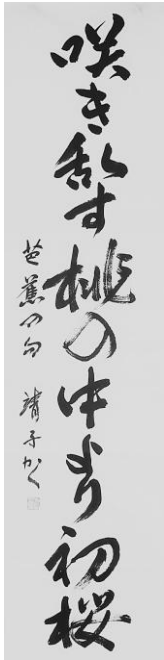 咲き乱す桃の中より初桜
芭蕉の句 靖子かく